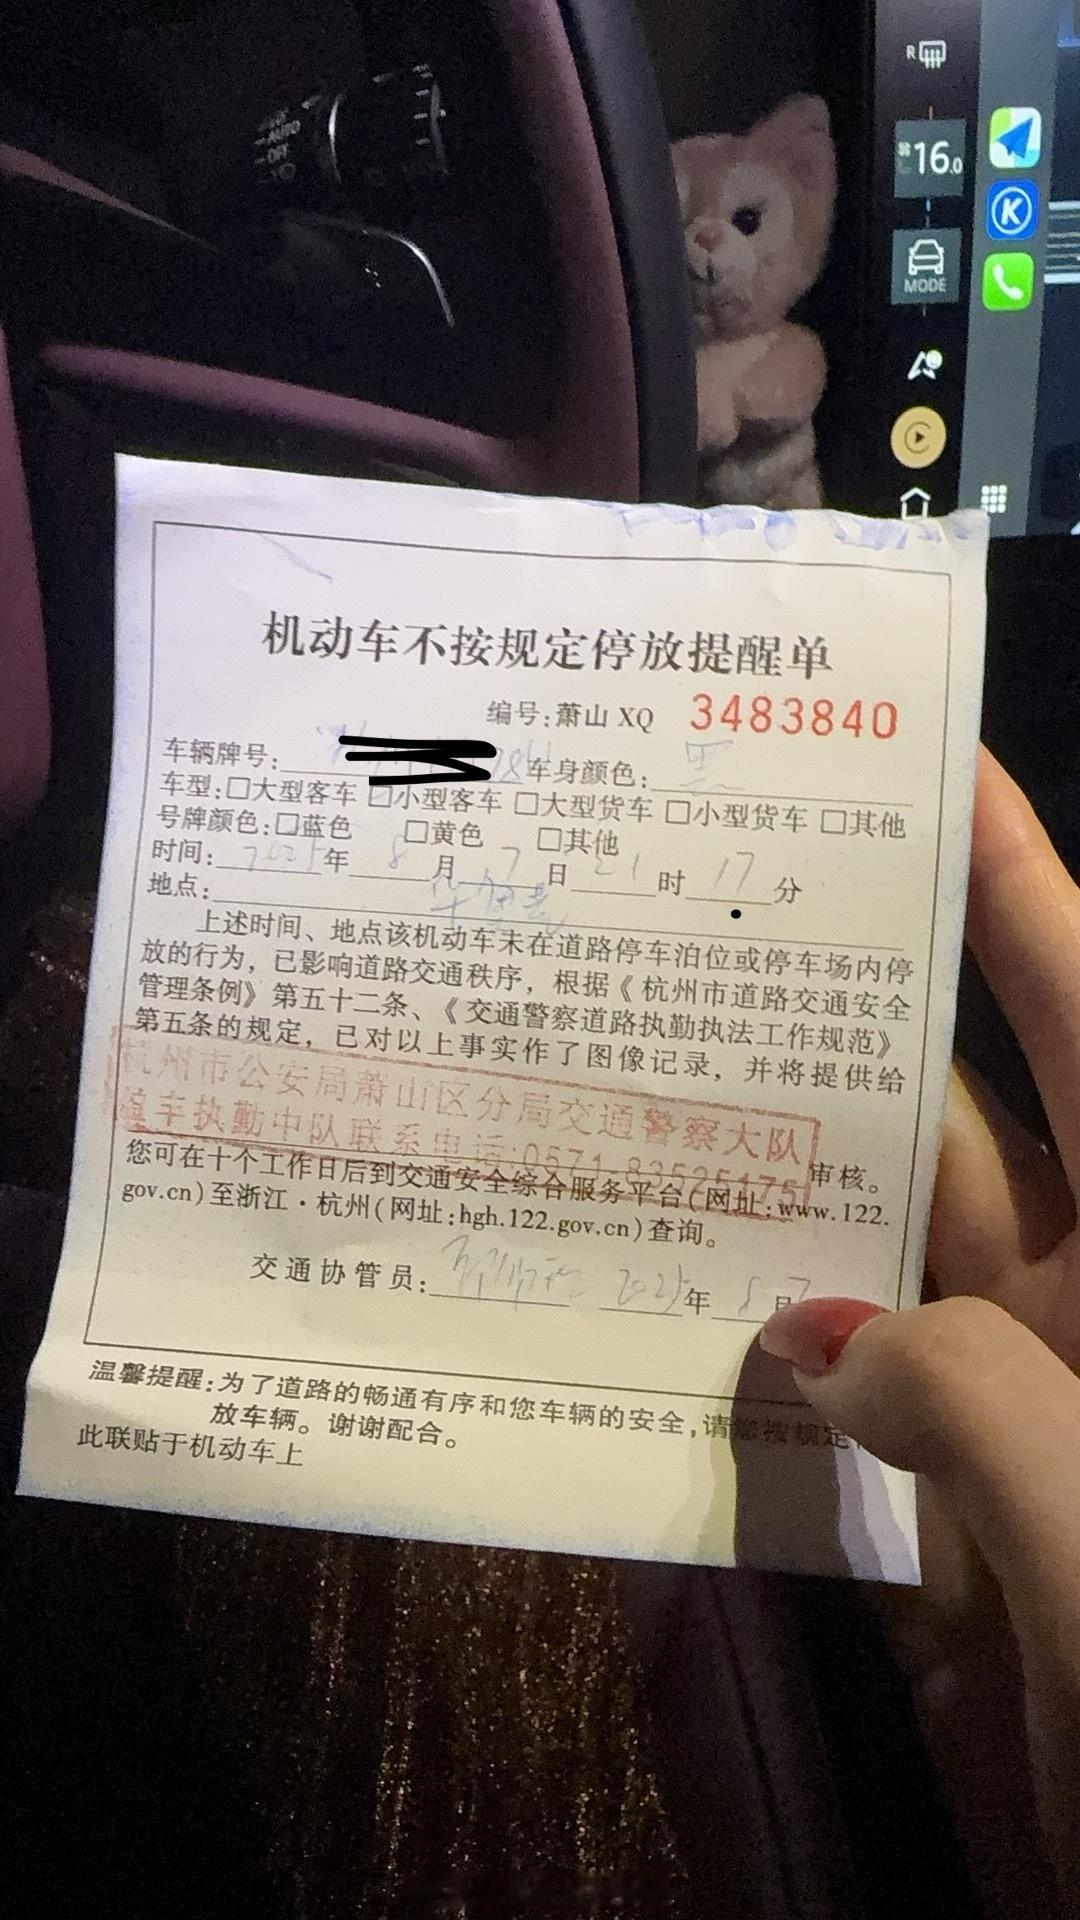 R
AUTO
OFF
16.0
MODE
K
机动车不按规定停放提醒单
编号:萧山 XQ 3483840
车辆牌号: 车身颜色: 黑
车型:□大型客车 ☑小型客车 □大型货车 □小型货车 □其他
号牌颜色:□蓝色 □黄色 □其他
时间: 2025年 8月 7日 21时 17分
地点:
上述时间、地点该机动车未在道路停车泊位或停车场内停
放的行为，已影响道路交通秩序，根据《杭州市道路交通安全
管理条例》第五十二条、《交通警察道路执勤执法工作规范》
第五条的规定，已对以上事实作了图像记录，并将提供给
杭州市公安局萧山区分局交通警察大队
车执勤中队联系电话:0571-83525175
审核。
您可在十个工作日后到交通安全综合服务平台(网址:www.122.
gov.cn)至浙江·杭州(网址:hgh.122.gov.cn)查询。
交通协管员: 2025年 8月7
温馨提醒:为了道路的畅通有序和您车辆的安全,请您按规定
放车辆。谢谢配合。
此联贴于机动车上